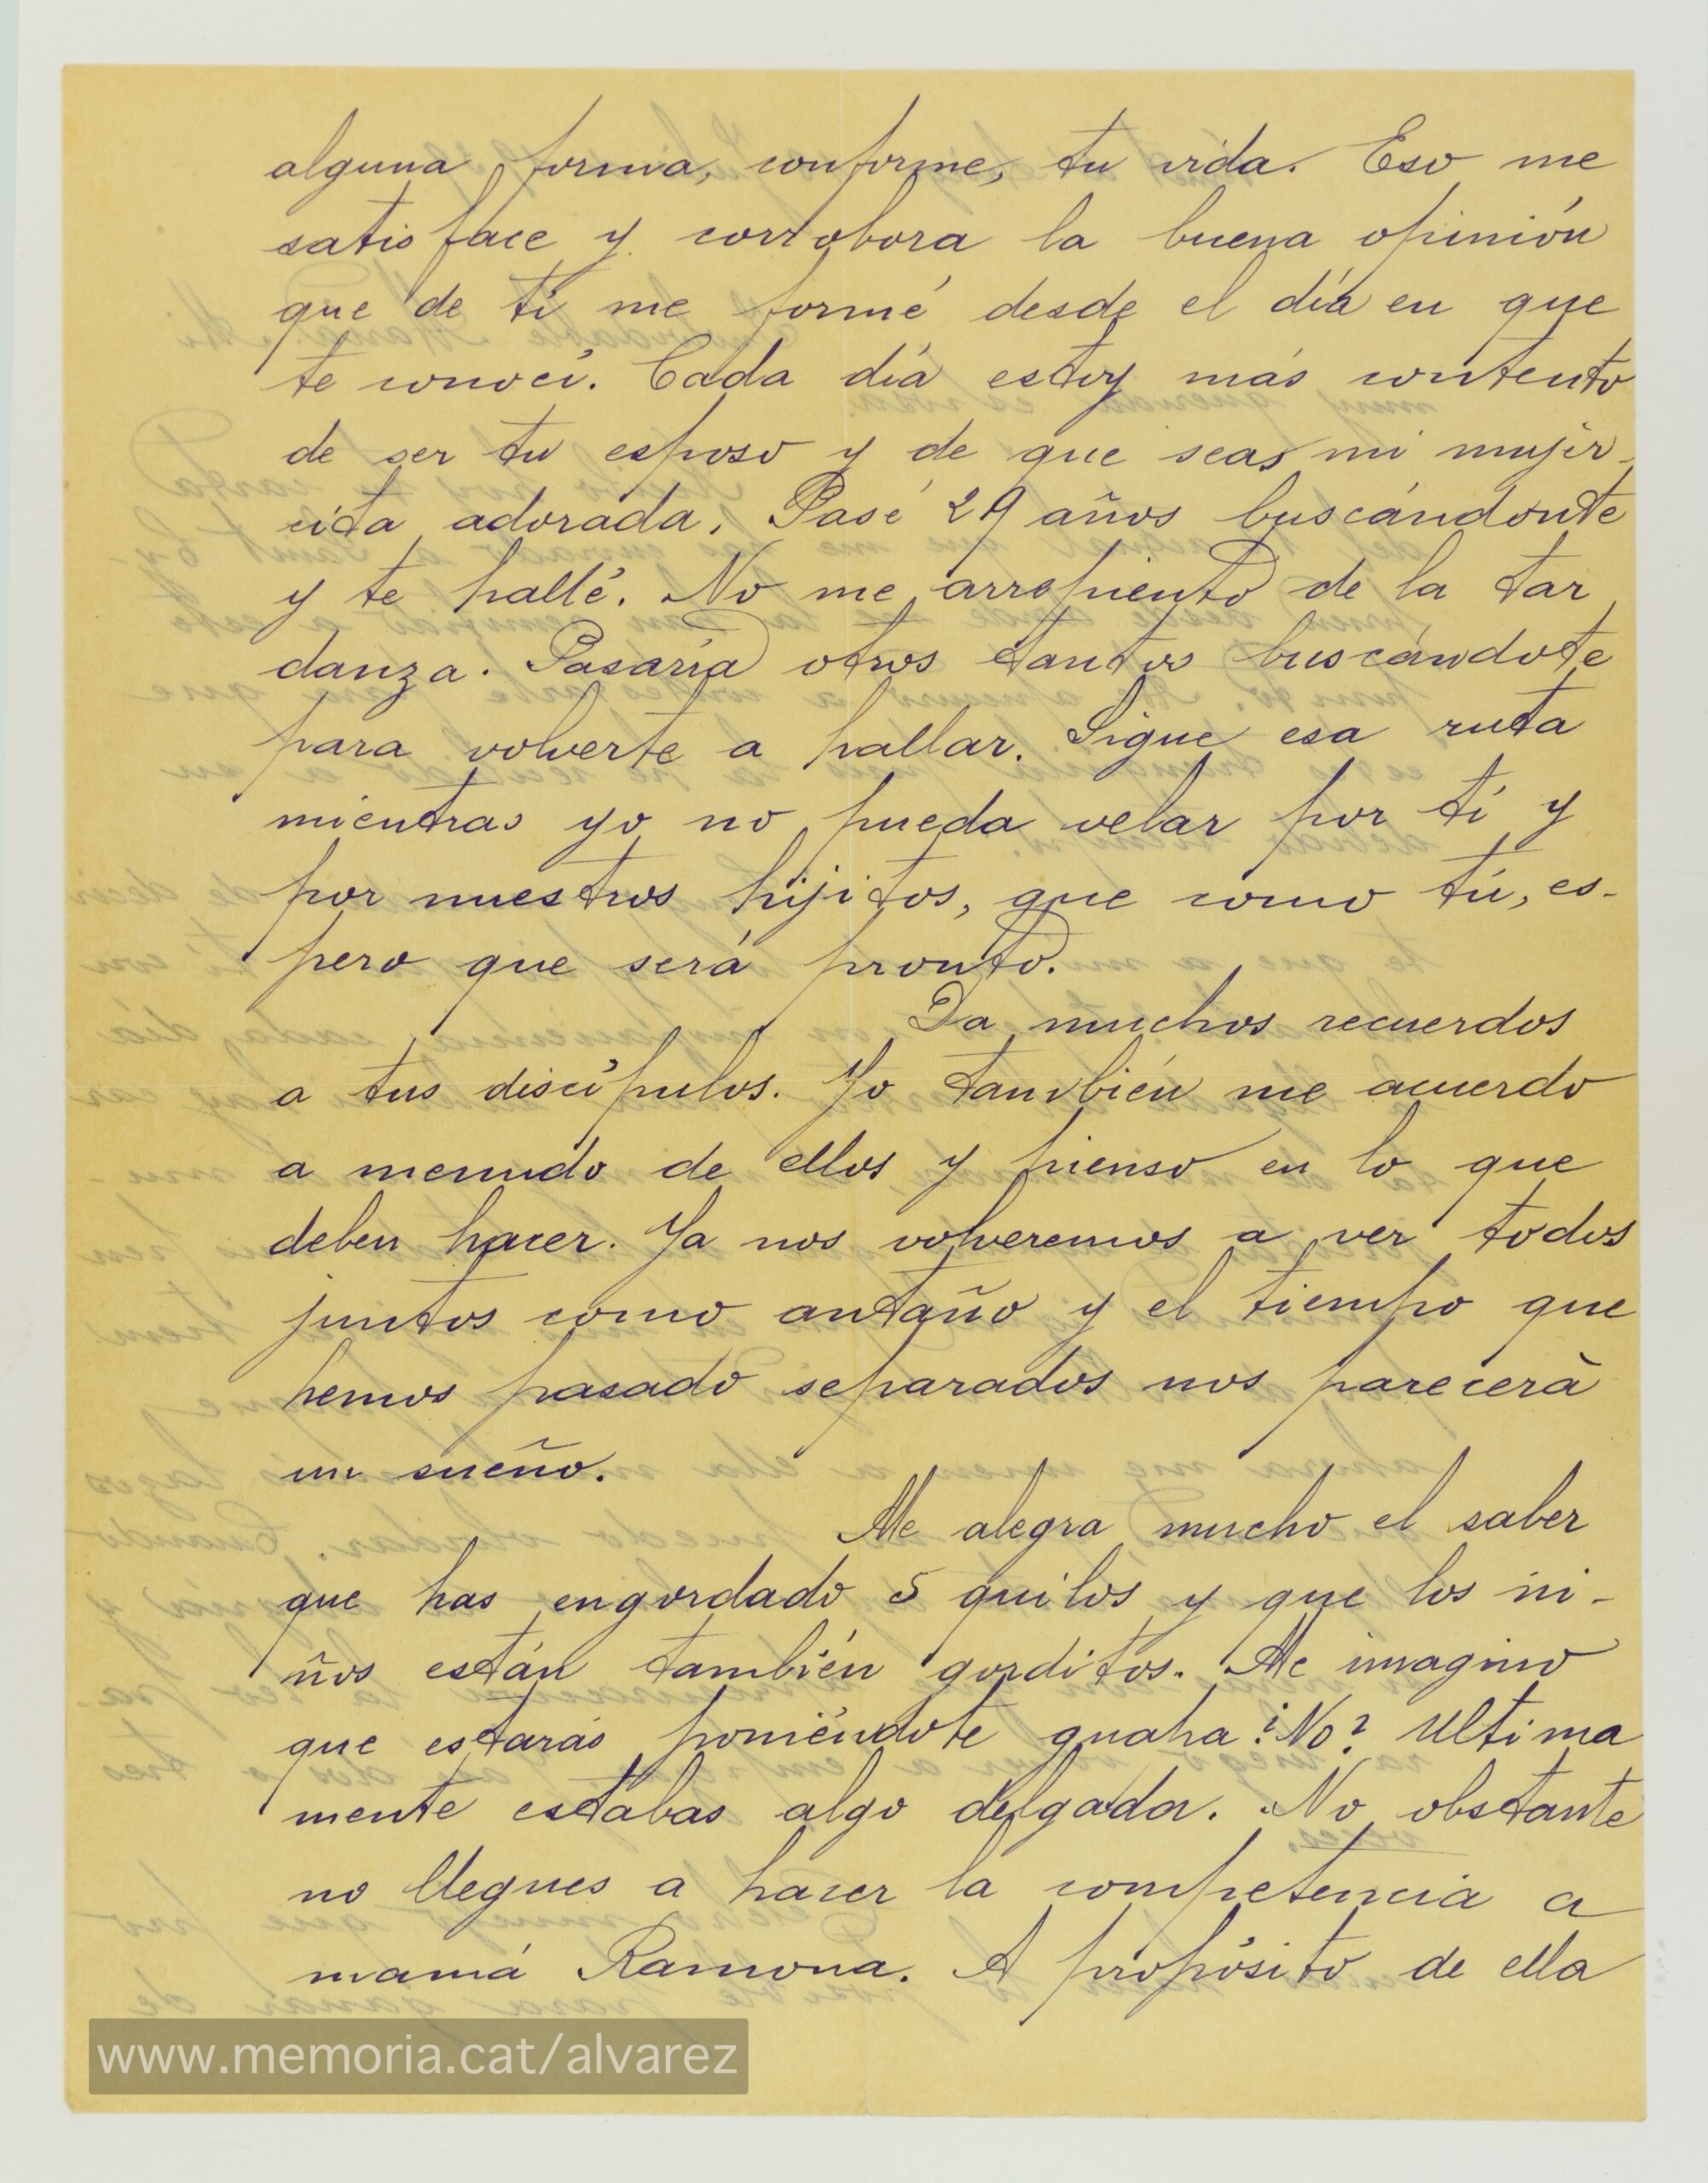 alguna forma, conforme, tu vida. Eso me
satisface y corrobora la buena opinión
que de tí me formé desde el día en que
te conocí. Cada día estoy más contento
de ser tu esposo y de que seas mi mujer-
cita adorada. Pasé 29 años buscándonte
y te hallé. No me arrepiento de la tar
danza. Pasaría otros tantos buscándote
para volverte a hallar. Sigue esa ruta
mientras yo no pueda velar por tí y
por nuestros hijitos, que como tú, es-
pero que será pronto.
Da muchos recuerdos
a tus discípulos. Yo también me acuerdo
a menudo de ellos y pienso en lo que
deben hacer. Ya nos volveremos a ver todos
juntos como antaño y el tiempo que
hemos pasado separados nos parecerà
un sueño.
Me alegra mucho el saber
que has engordado 5 quilos y que los ni-
ños están también gorditos. Me imagino
que estarás poniéndote guapa ¿No? Ultima
mente estabas algo delgada. No obstante
no llegues a hacer la competencia a
mamá Ramona. A propósito de ella
www.memoria.cat/alvarez